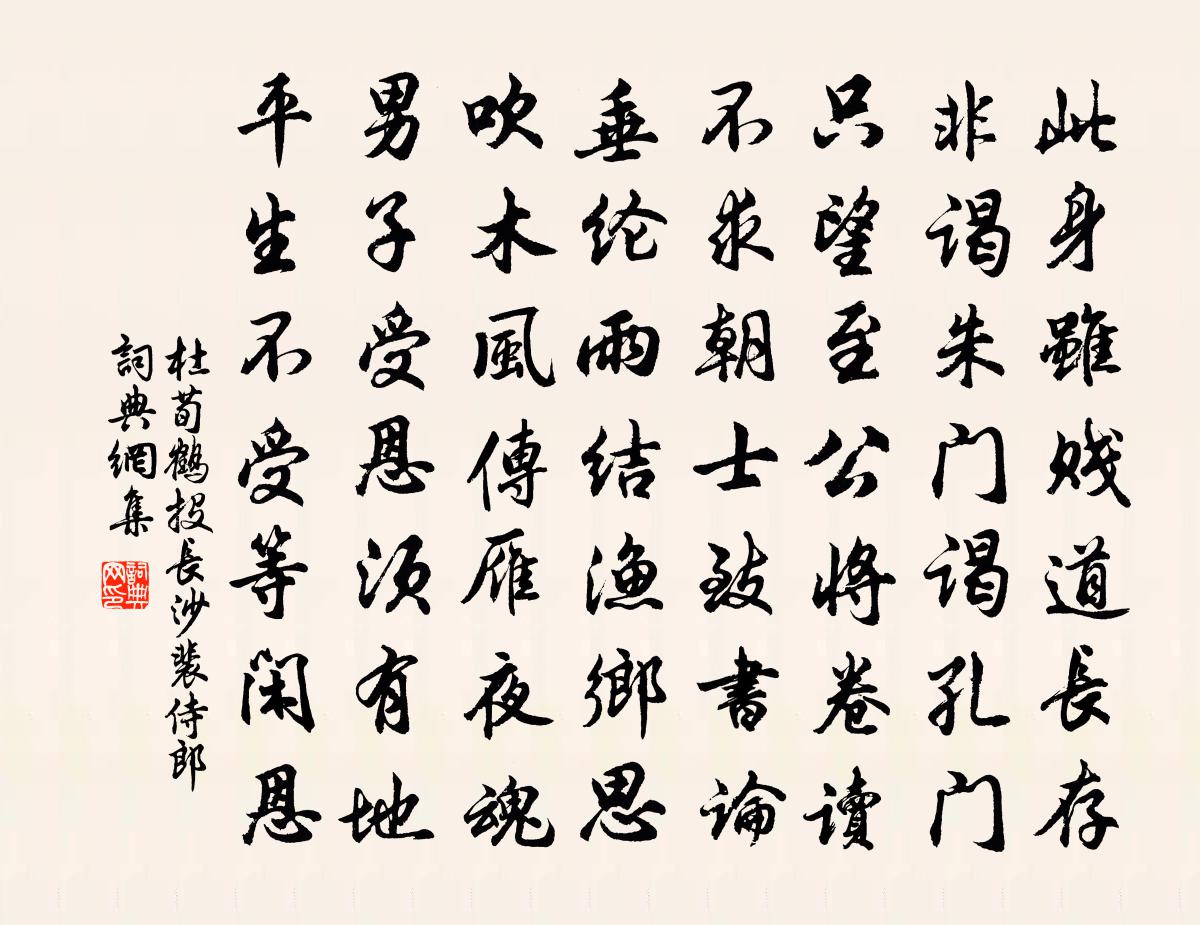 此身雖賤道長存
非谒朱门谒孔门
只望至公將卷讀
不求朝士致書論
垂纶雨结漁鄉思
吹木風傳雁夜魂
男子受恩须有地
平生不受等闲恩
杜荀鶴投長沙裴侍郎
詞典網集
詞典
网印